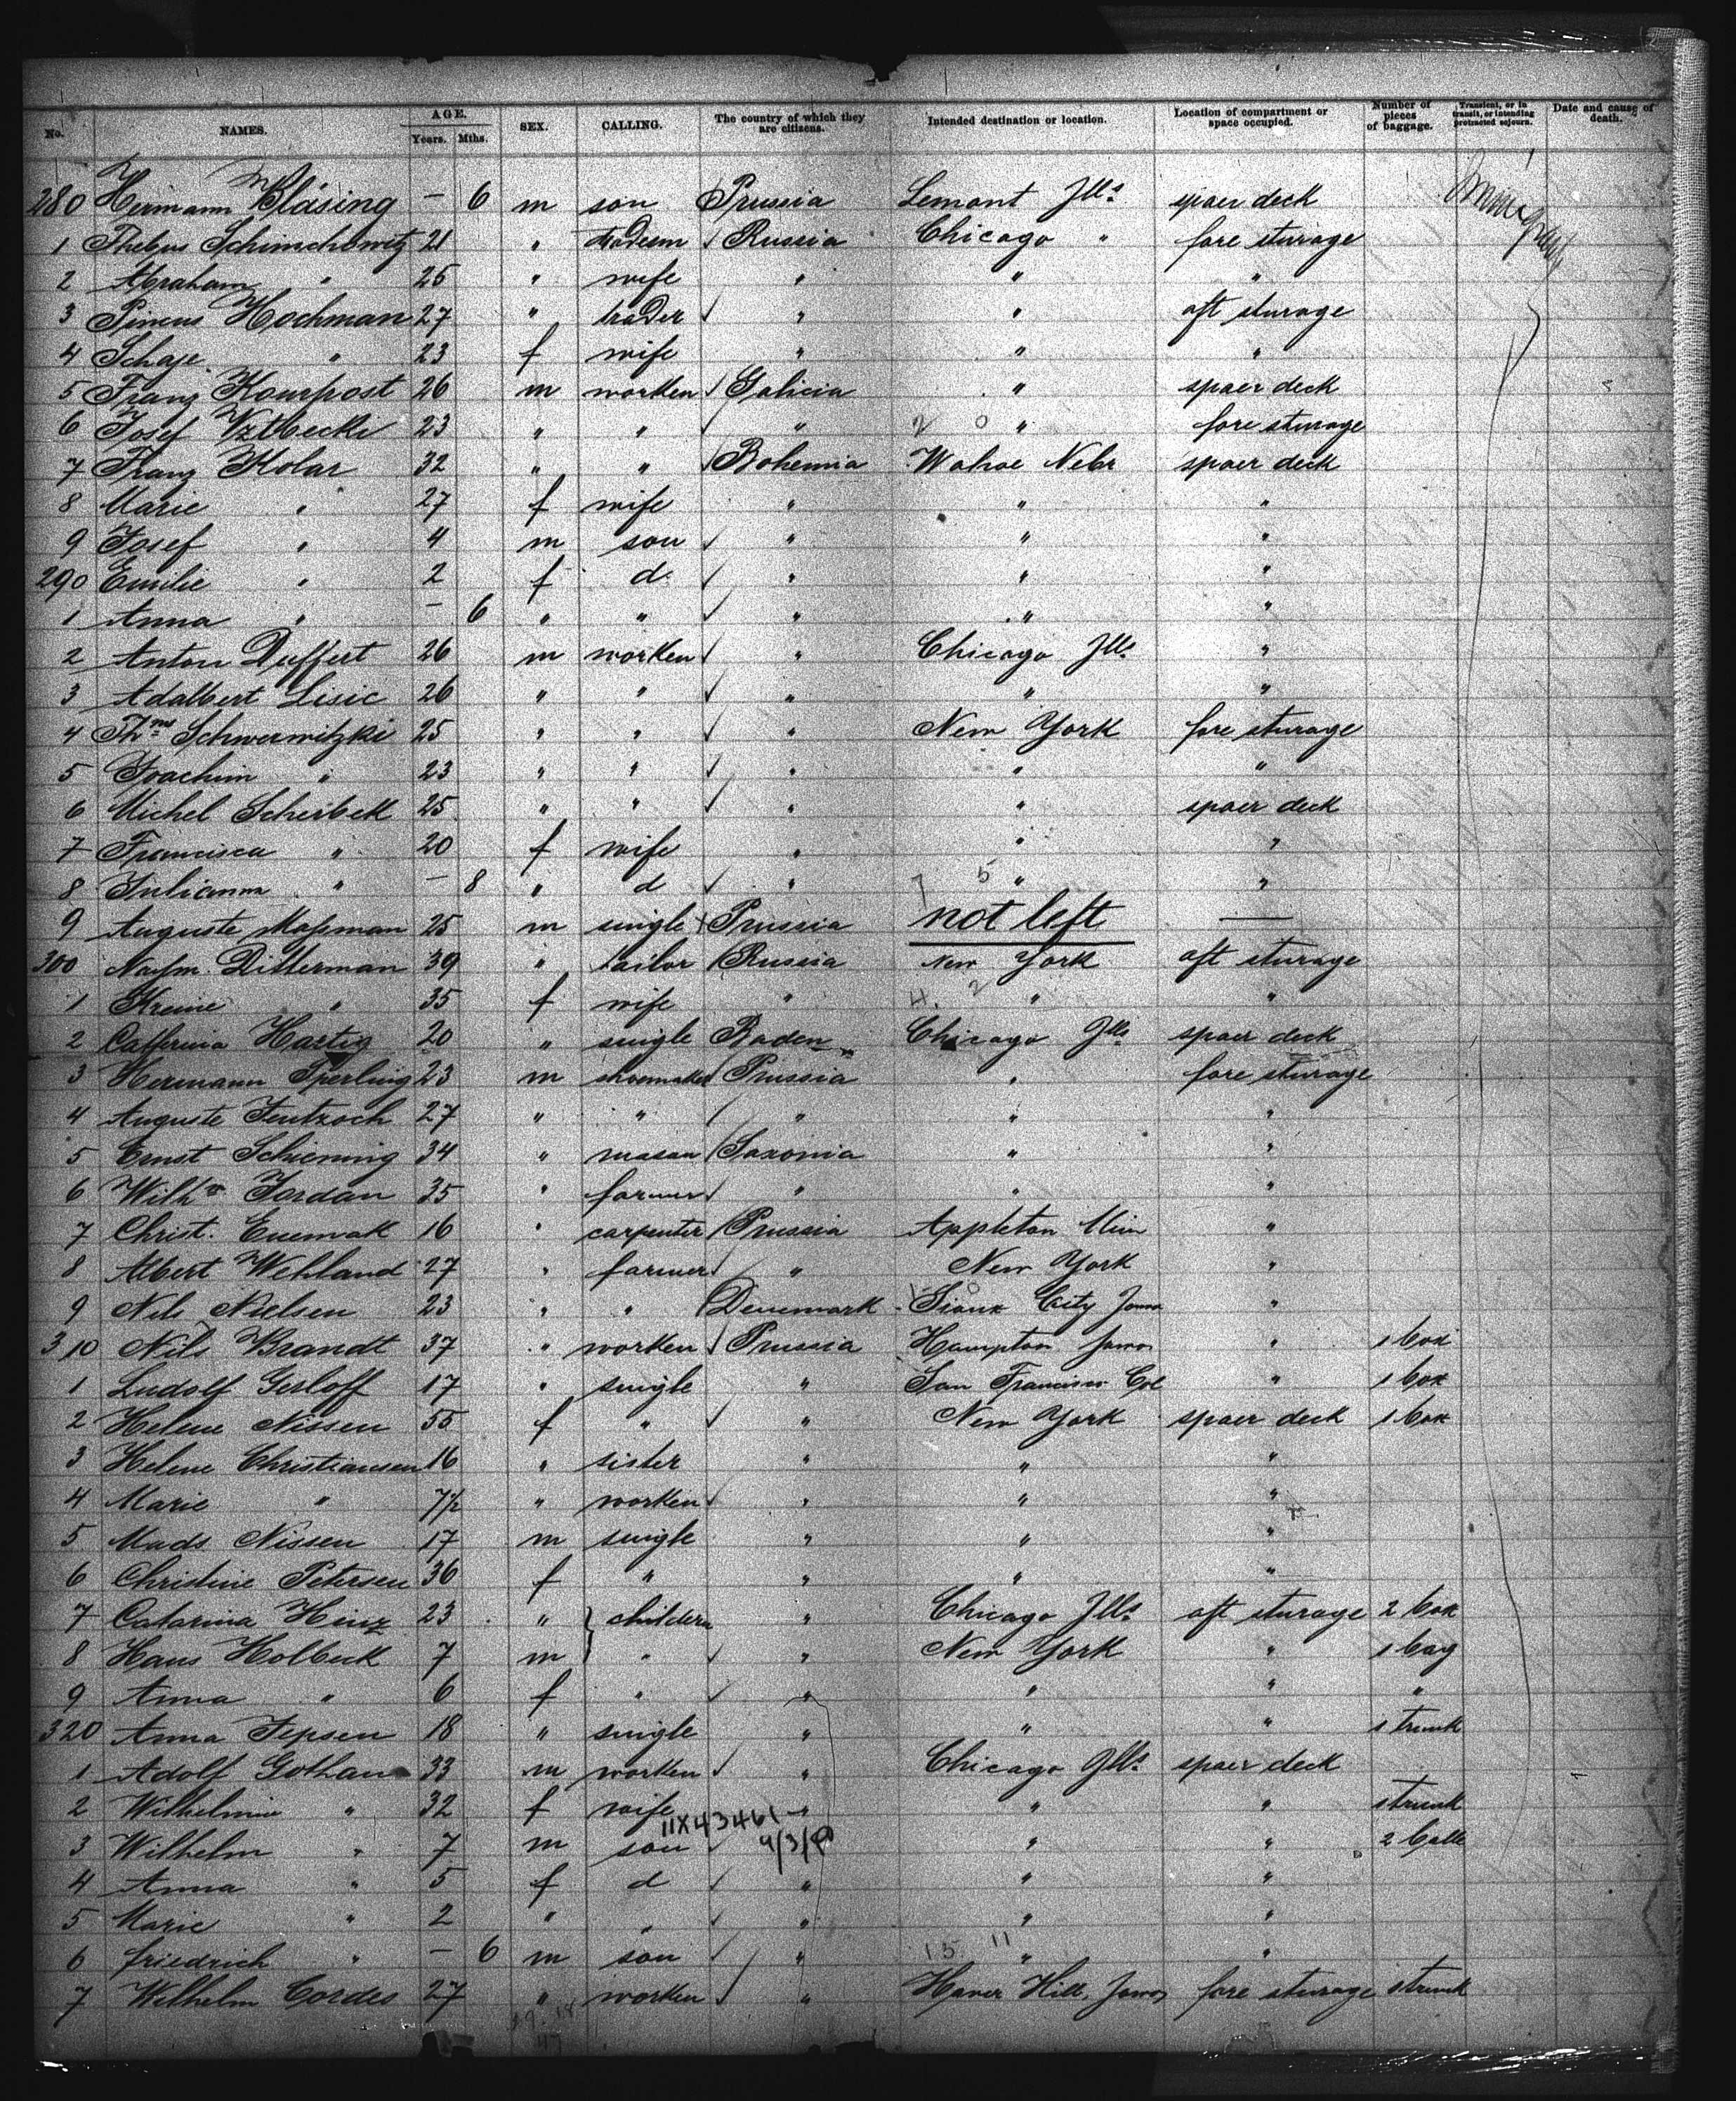 No. NAMES. AGE. Years. Mths. SEX. CALLING. The country of which they are citizens. Intended destination or location. Location of compartment or space occupied. Number of pieces of baggage. Transient, or in transit, or intending protracted sojourn. Date and cause of death.
280 Hermann Kläsing — 6 m son Prussia Lemont Ills spaer deck
1 Schimchowitz 21 " Russia Chicago " fore sturage
2 Abraham " 25 " wife " " "
3 Pincus Hochman 27 " trader " " aft sturage
4 Schaje " 23 f wife " " "
5 Franz Kourpost 26 m worken Galicia " spaer deck
6 Josef 23 " " " 2 0 " fore sturage
7 Franz Kolar 32 " " Bohemia Wahoe Nebr spaer deck
8 Marie " 27 f wife " " "
9 Josef " 4 m son " " "
290 Emilie " 2 f d. " " "
1 Anna " — 6 " " " " "
2 Anton Duffert 26 m worken " Chicago Ills "
3 Adalbert Lisic 26 " " " " "
4 Ths Schwerwitzki 25 " " " New York fore sturage
5 Joachim " 23 " " " " "
6 Michel Scheibek 25 " " " " spaer deck
7 Francisca " 20 f wife " " "
8 Julianna " — 8 " d " 7 5 " "
9 Auguste Massman 25 m single Prussia not left —
300 Ditterman 39 " tailor Russia New York aft sturage
1 Kreine " 35 f wife " 4. 2 " "
2 Catherina Hartig 20 " single Baden Chicago Ills spaer deck
3 Hermann Sperling 23 m shoemaker Prussia " fore sturage
4 Auguste Jentzoch 27 " " " " "
5 Ernst Schiening 34 " mason Saxonia " "
6 Wilhm Jordan 35 " farmer " " "
7 Christ. Enemak 16 " carpenter Prussia Appleton Min "
8 Albert Wehland 27 " farmer " New York "
9 Nels Nielsen 23 " " Denemark Sioux City Jowa "
310 Nils Brandt 37 " worken Prussia Hampton Jowa " 1 box
1 Ludolf Gerloff 17 " single " San Francisco Cal " 1 box
2 Helene Nissen 55 f " " New York spaer deck 1 box
3 Helene Christiansen 16 " sister " " "
4 Marie " 7½ " worken " " "
5 Mads Nissen 17 m single " " "
6 Christine Petersen 36 f " " " "
7 Catarina Hinz 23 " childern " Chicago Ills aft sturage 2 box
8 Hans Holbeck 7 m " " New York " 1 bag
9 Anna " 6 f " " " " "
320 Anna Jepsen 18 " single " " " 1 trunk
1 Adolf Gothan 33 m worken " Chicago Ills spaer deck
2 Wilhelmine " 32 f wife " " " 1 trunk
11X43461
3 Wilhelm " 7 m son " " 2
4 Anna " 5 f d " " "
5 Marie " 2 " " " " "
6 friedrich " — 6 m son " 15 11 " "
7 Wilhelm Cordes 27 " worken " Haver Hill, Jowa fore sturage 1 trunk